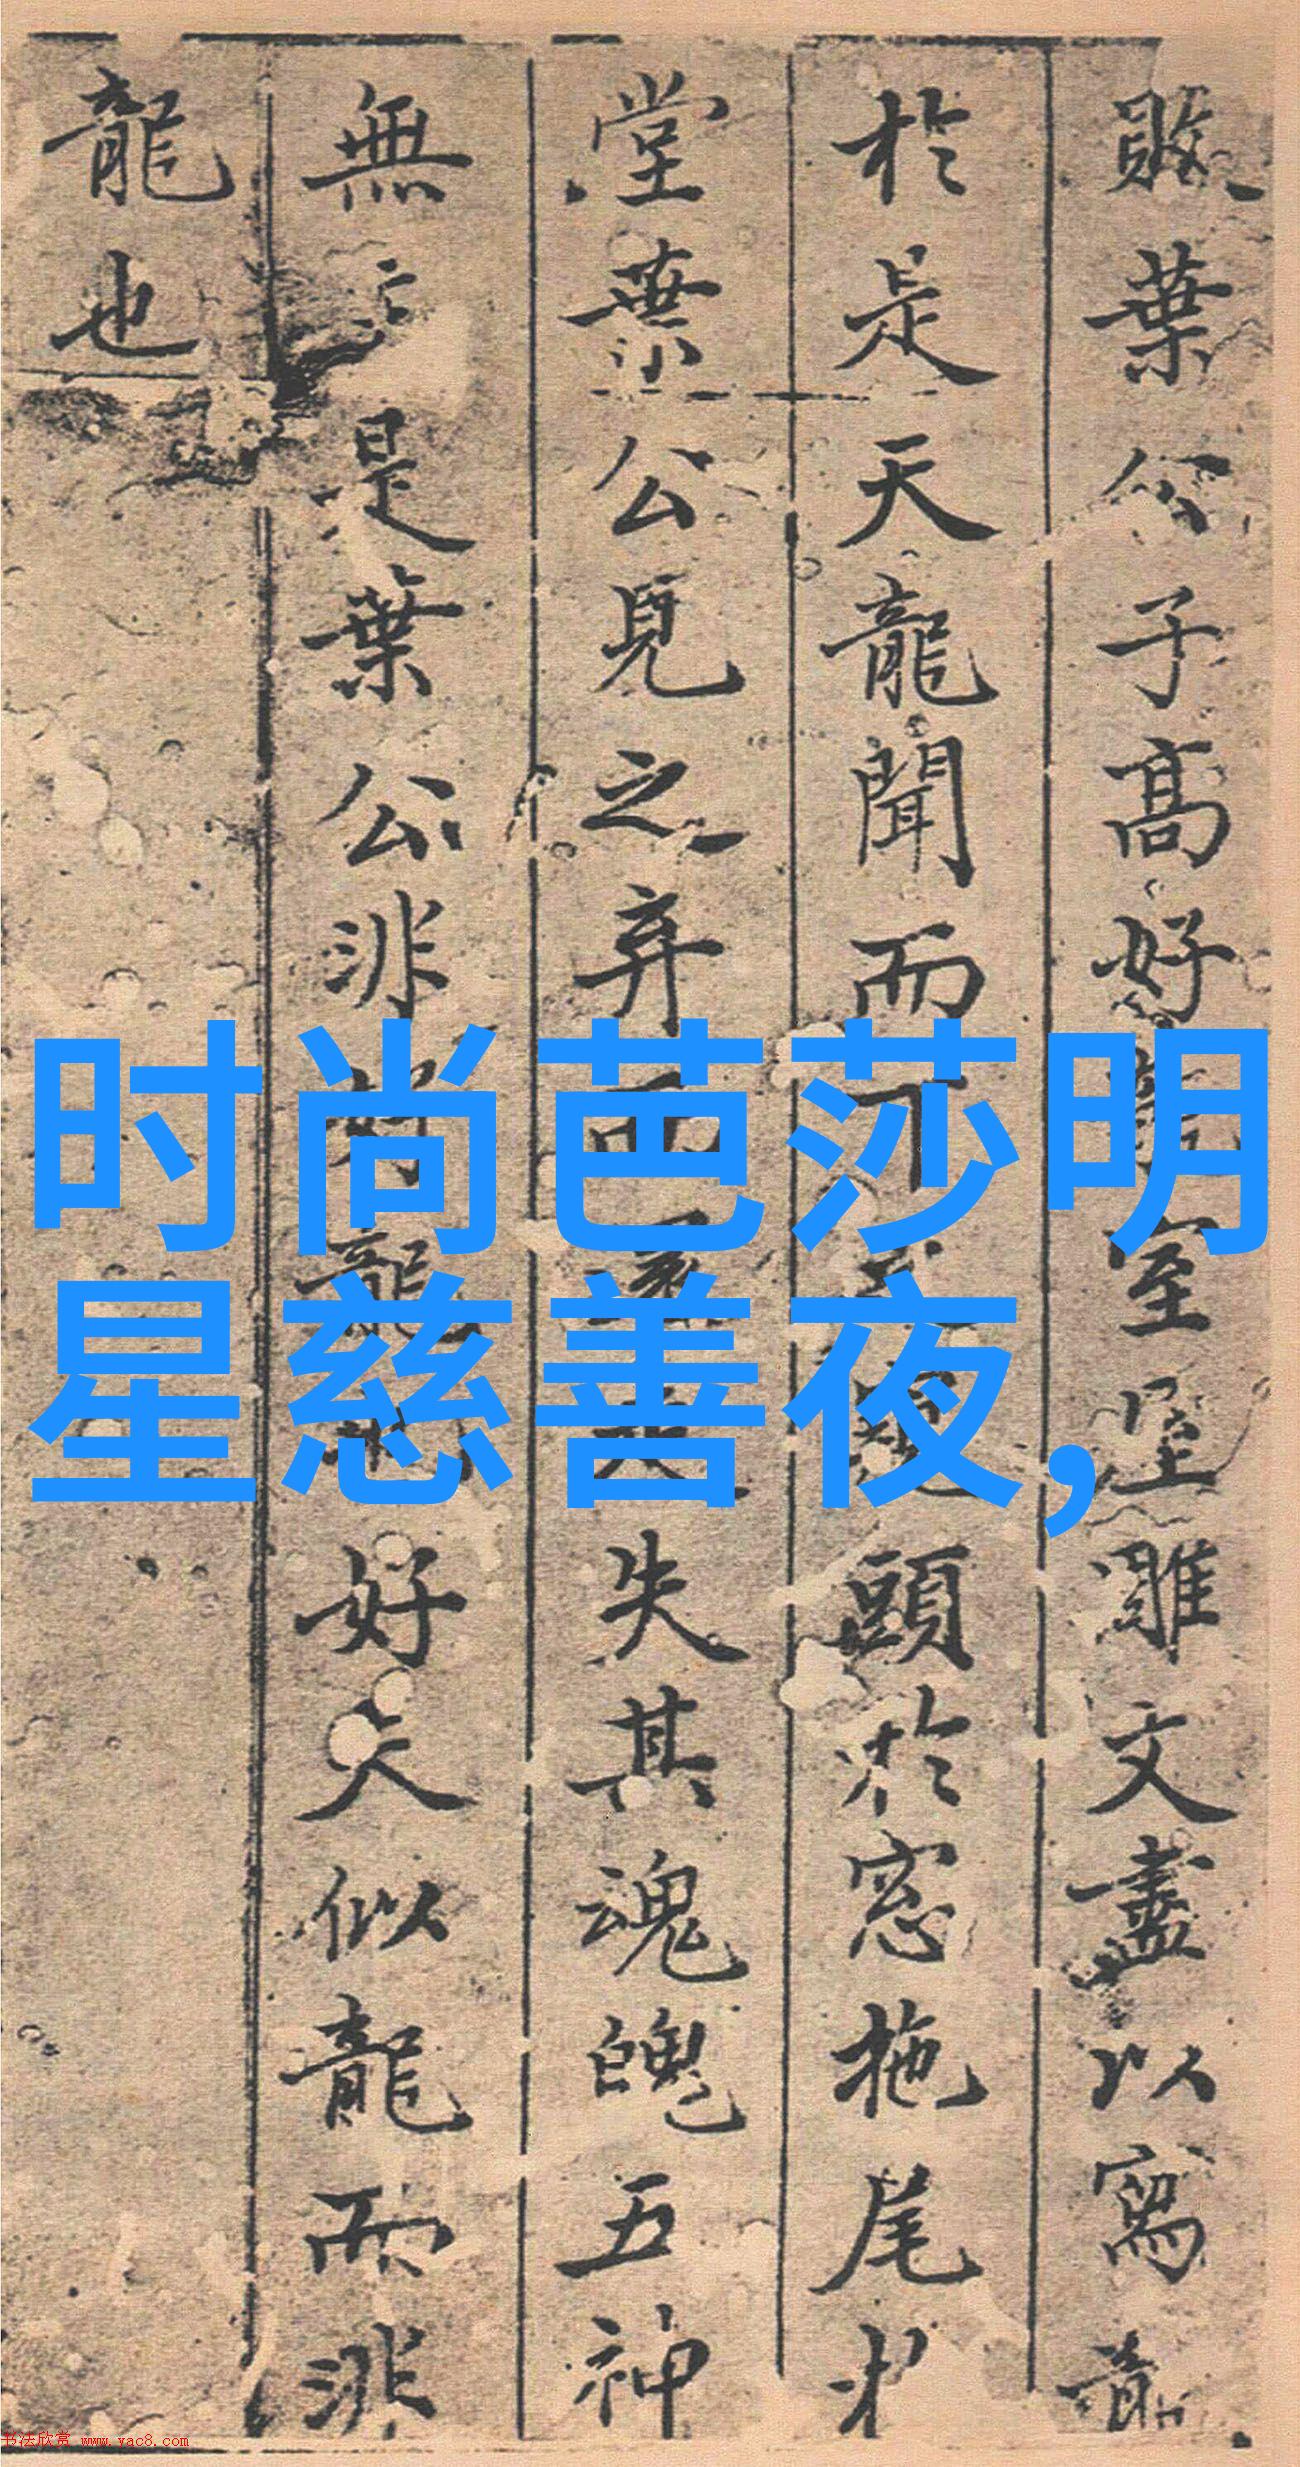 葉公子高好室雕文盡以寫龍
於是天龍聞而下頭於窓拖尾
堂葉公見之弃而還失其魂魄五神
無是葉公非好龍好夫似龍而非
龍也
时尚芭莎明
星慈善夜,
书法欣赏 www.yac8.com